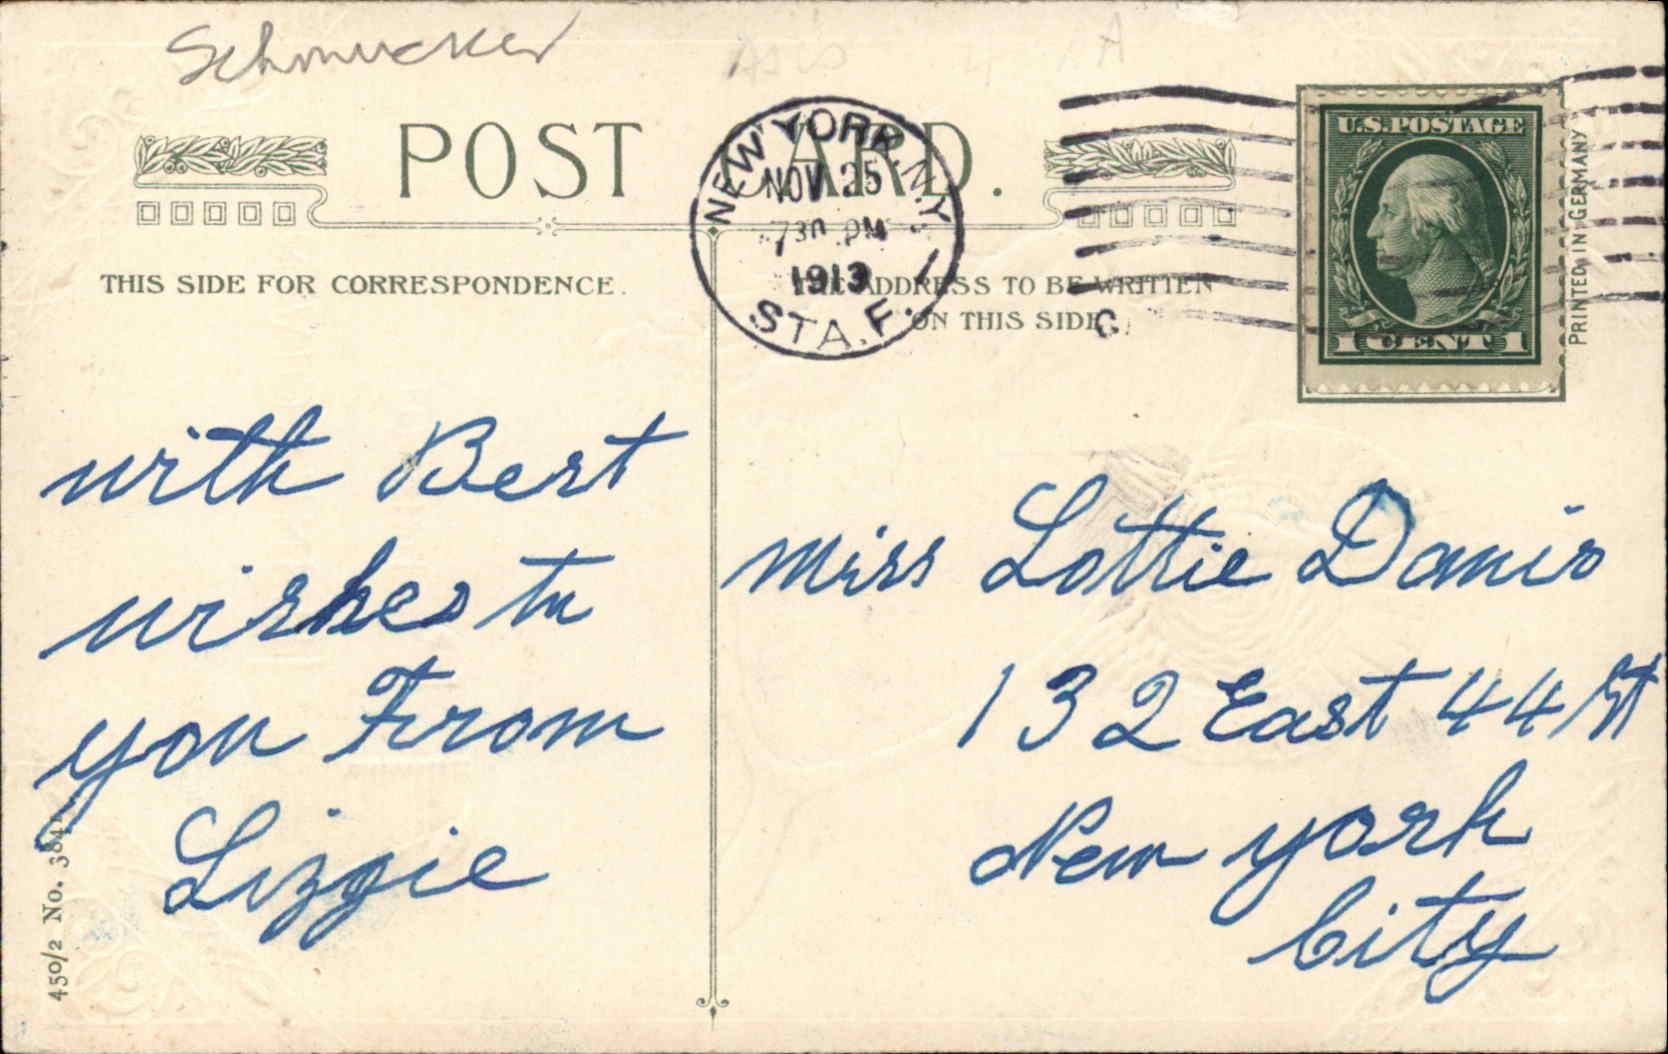 Schmucker
POST CARD.
NEW YORK, N.Y.
NOV 25
7 30 PM
1913
STA. F.
U.S. POSTAGE
1 CENT 1
PRINTED IN GERMANY
THIS SIDE FOR CORRESPONDENCE.
THE ADDRESS TO BE WRITTEN
ON THIS SIDE.
with Best
wishes to
you From
Lizzie
Miss Lottie Danis
132 East 44 St
New York
City
450/2 No. 384